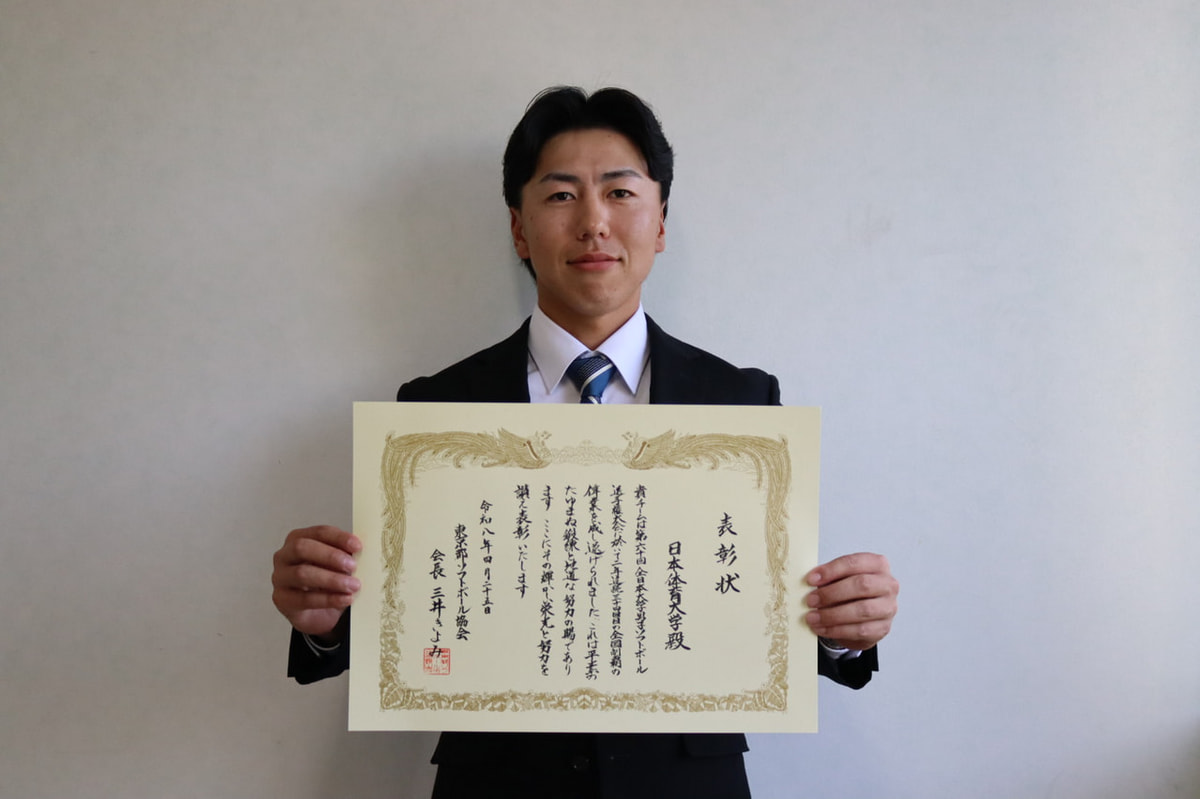 表彰状
日本体育大学殿
貴チームは第六十回全日本大学男子ソフトボール
選手権大会に於いて二年連続二十四回目の全国制覇の
偉業を成し遂げられましたこれは平素の
たゆまぬ鍛練と地道な努力の賜であり
ます ここにその輝かしい栄光と努力を
讃え表彰いたします
令和八年四月二十五日
東京都ソフトボール協会
会長 三井きよみ